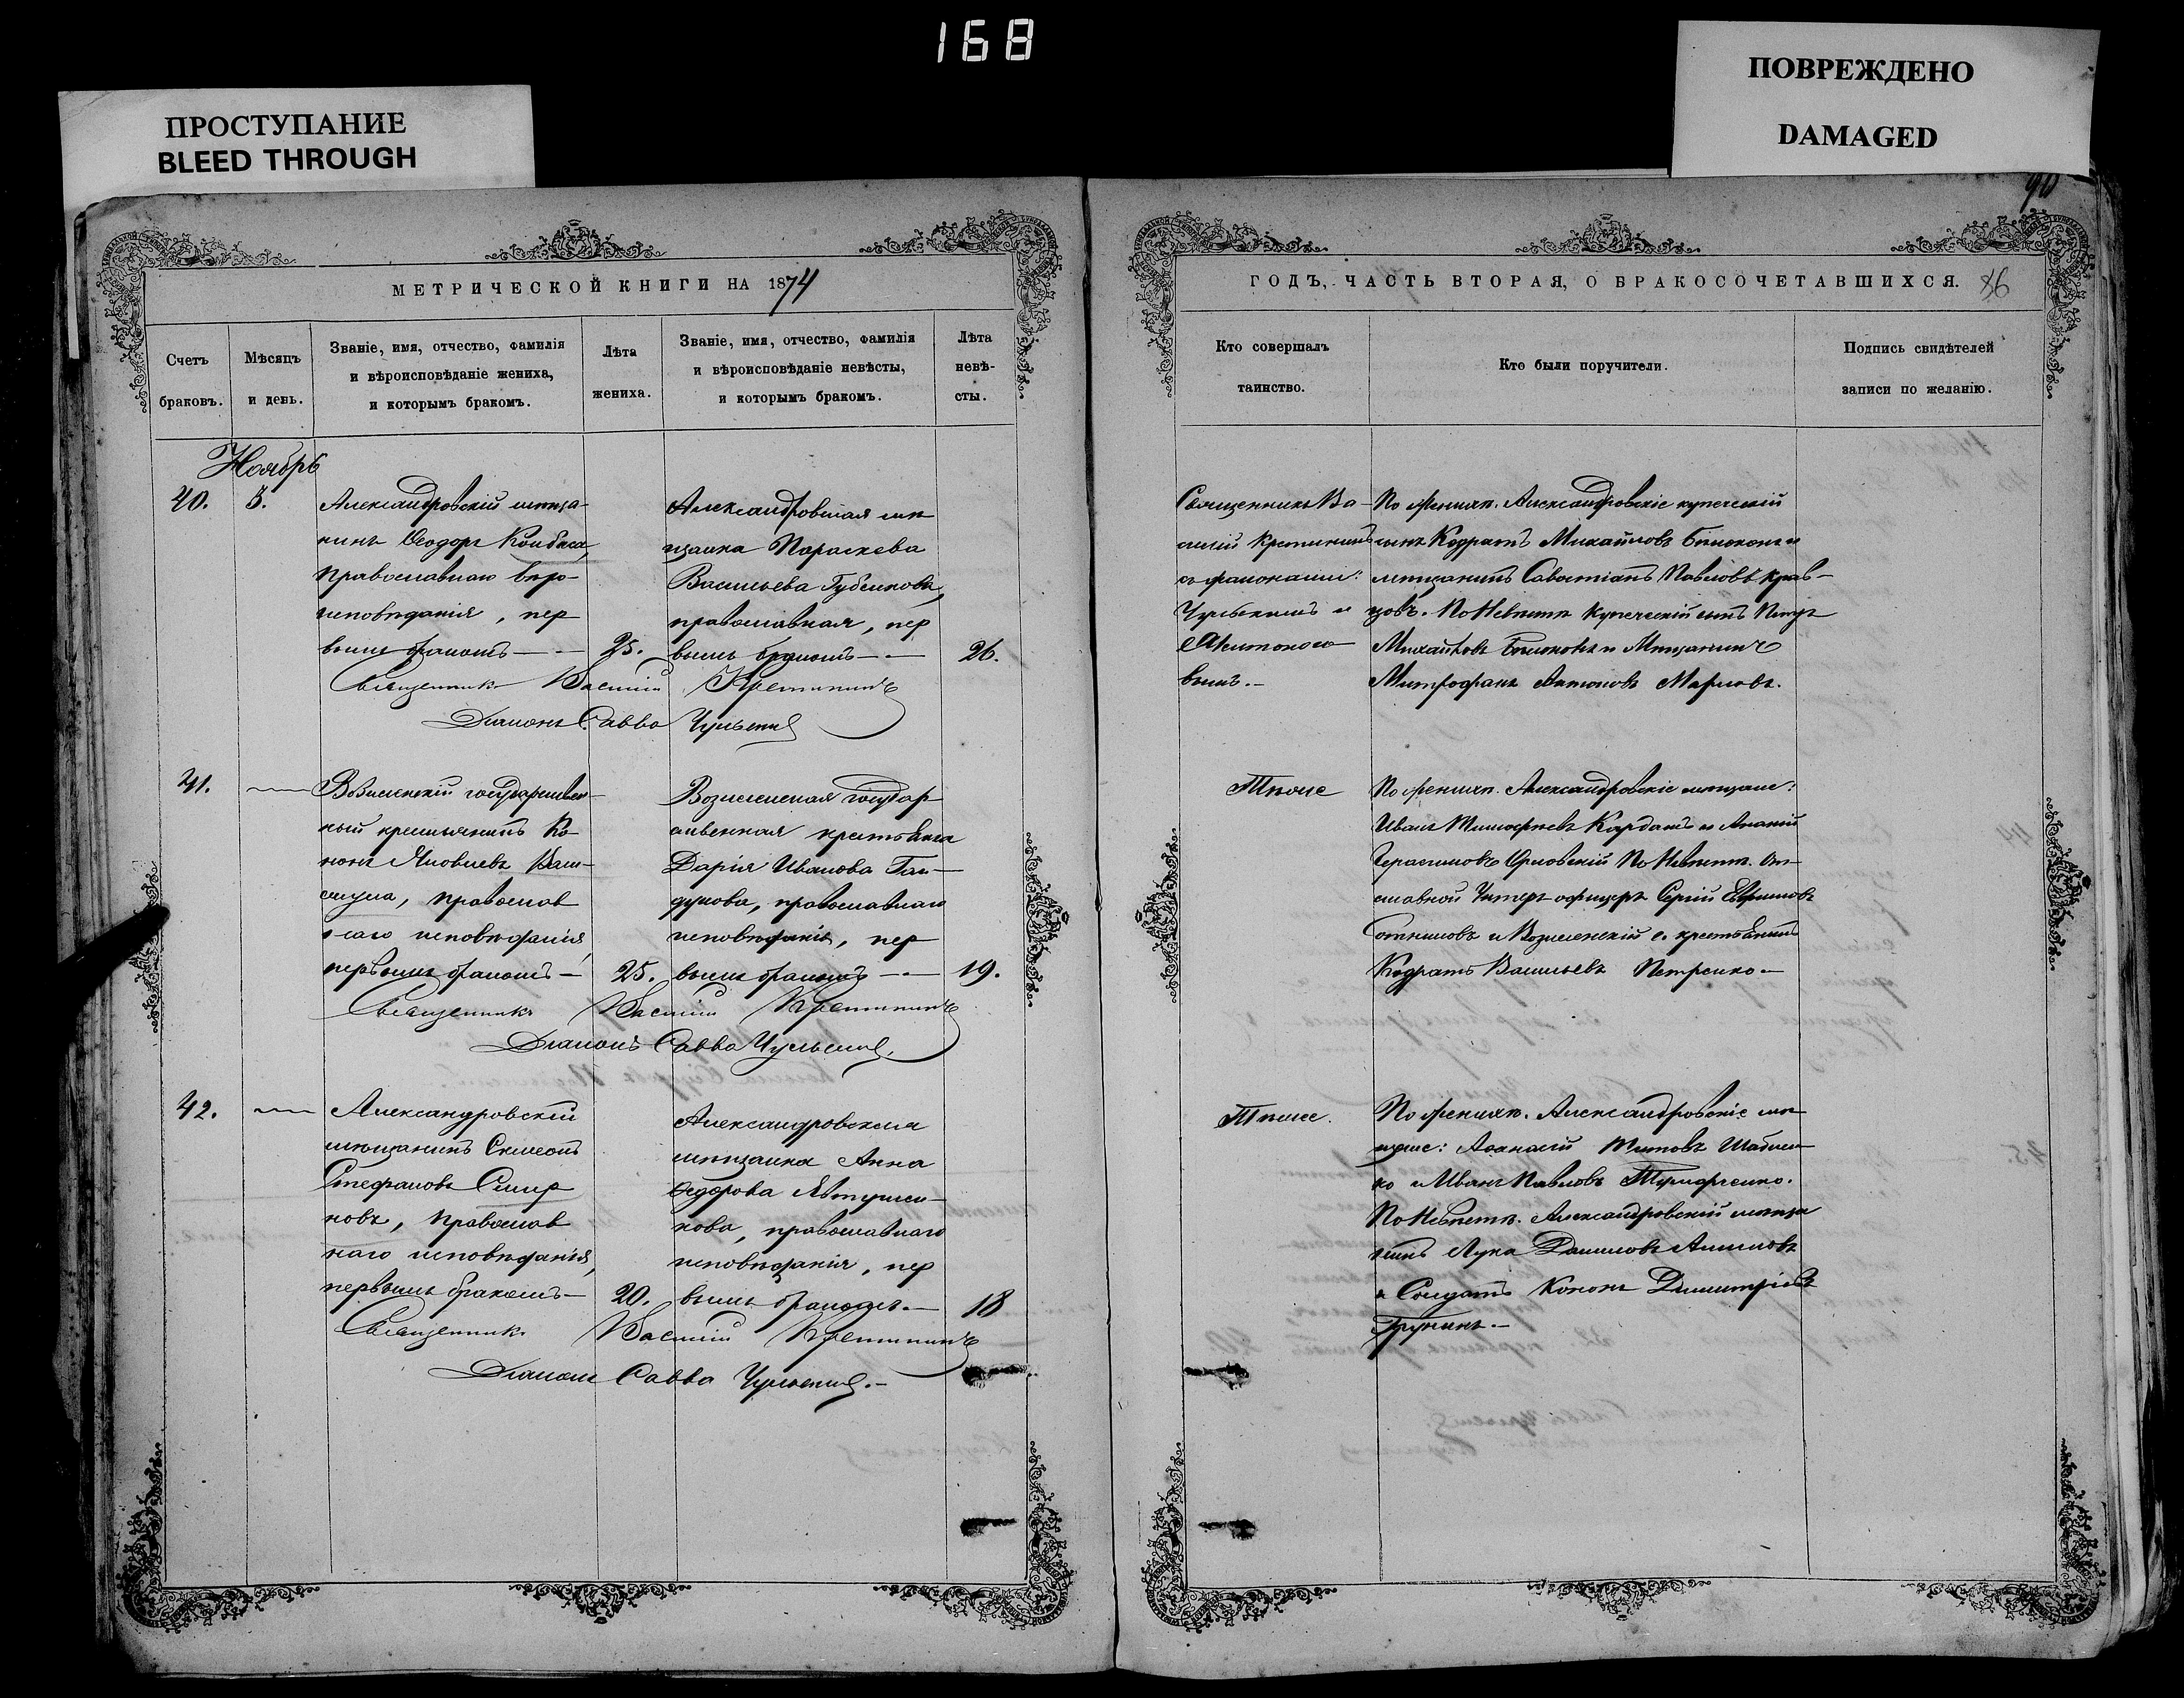 168
ПРОСТУПАНИЕ
BLEED THROUGH
ПОВРЕЖДЕНО
DAMAGED
90
МЕТРИЧЕСКОЙ КНИГИ НА 1874
Счетъ браковъ.
Мѣсяцъ и день.
Званіе, имя, отчество, фамилія
и вѣроисповѣданіе жениха,
и которымъ бракомъ.
Лѣта
жениха.
Званіе, имя, отчество, фамилія
и вѣроисповѣданіе невѣсты,
и которымъ бракомъ.
Лѣта
невѣ-
сты.
Ноябрь
40. 5.
Александровскій мѣща-
нинъ Ѳеодоръ
Православнаго вѣро-
исповѣданія, пер
вымъ бракомъ — 25.
Александровская мѣ
щанка Параскева
Васильева
православная, пер
вымъ бракомъ — 26.
Священникъ Василій Кретининъ
Діаконъ Савва
41.
государствен-
ный крестьянинъ Ко-
нонъ Яковлевъ
православ
наго исповѣданія,
первымъ бракомъ — 25.
Вознесенская государ
ственная крестьянка
Дарія Иванова Гай-
дукова, православнаго
исповѣданія, пер
вымъ бракомъ — 19.
Священникъ Василій Кретининъ
Діаконъ Савва
42.
Александровскій
мѣщанинъ Симеонъ
Стефановъ Смир
новъ, Православ
наго исповѣданія,
первымъ бракомъ — 20.
Александровская
мѣщанка Анна
Ѳедорова
кова, православнаго
исповѣданія, пер
вымъ бракомъ. — 18
Священникъ Василій Кретининъ
Діаконъ Савва
ГОДЪ, ЧАСТЬ ВТОРАЯ, О БРАКОСОЧЕТАВШИХСЯ. 86
Кто совершалъ
таинство.
Кто были поручители.
Подпись свидѣтелей
записи по желанію.
Священникъ Ва-
силій Кретининъ
съ діаконами:
и
Антоно
вымъ. —
По женихѣ. Александровскіе купеческій
сынъ Кодратъ Михайловъ и
мѣщанинъ Савостіанъ Павловъ Крав-
цовъ. По Невѣстѣ купеческій сынъ Петръ
Михайловъ и Мѣщанинъ
Митрофанъ Антоновъ
Тѣже
По женихѣ. Александровскіе мѣщане:
Иванъ Тимофѣевъ и Ананій
Герасимовъ Орловскій По Невѣстѣ. От-
ставной Унтеръ-офицеръ Сергій
Сотниковъ и Вознесенскій г. крестьянинъ
Кодратъ Васильевъ Петренко —
Тѣже.
По женихѣ. Александровскіе мѣ
щане: Аѳанасій Титовъ
ко и Иванъ Павловъ
По Невѣстѣ. Александровскій мѣща
нинъ Лука Даниловъ
и Солдатъ Кононъ Димитріевъ